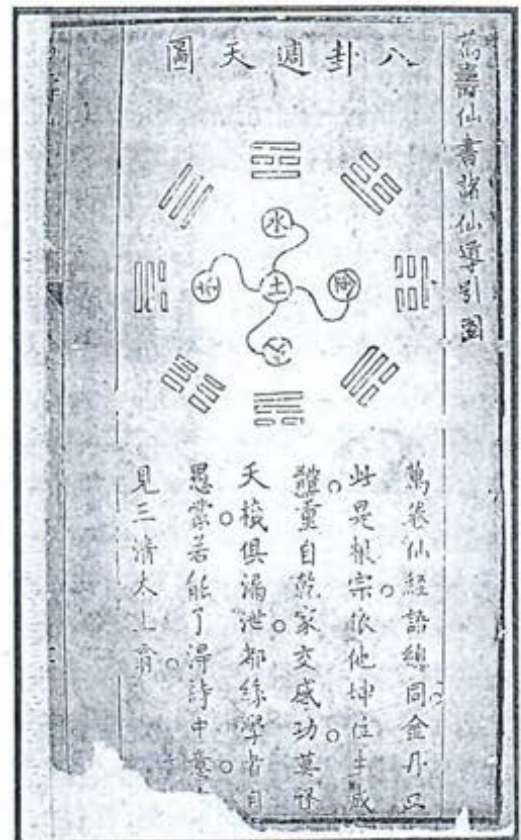 八卦週天圖
萬壽仙書諸仙導引圖
水
土
金
萬卷仙經語總同。金丹只
此是根宗。依他坤位生成
體。重自乾家交感功。莫訝
天機俱漏泄。都緣學者自
愚蒙。若能了得詩中意。
見三清太上翁。